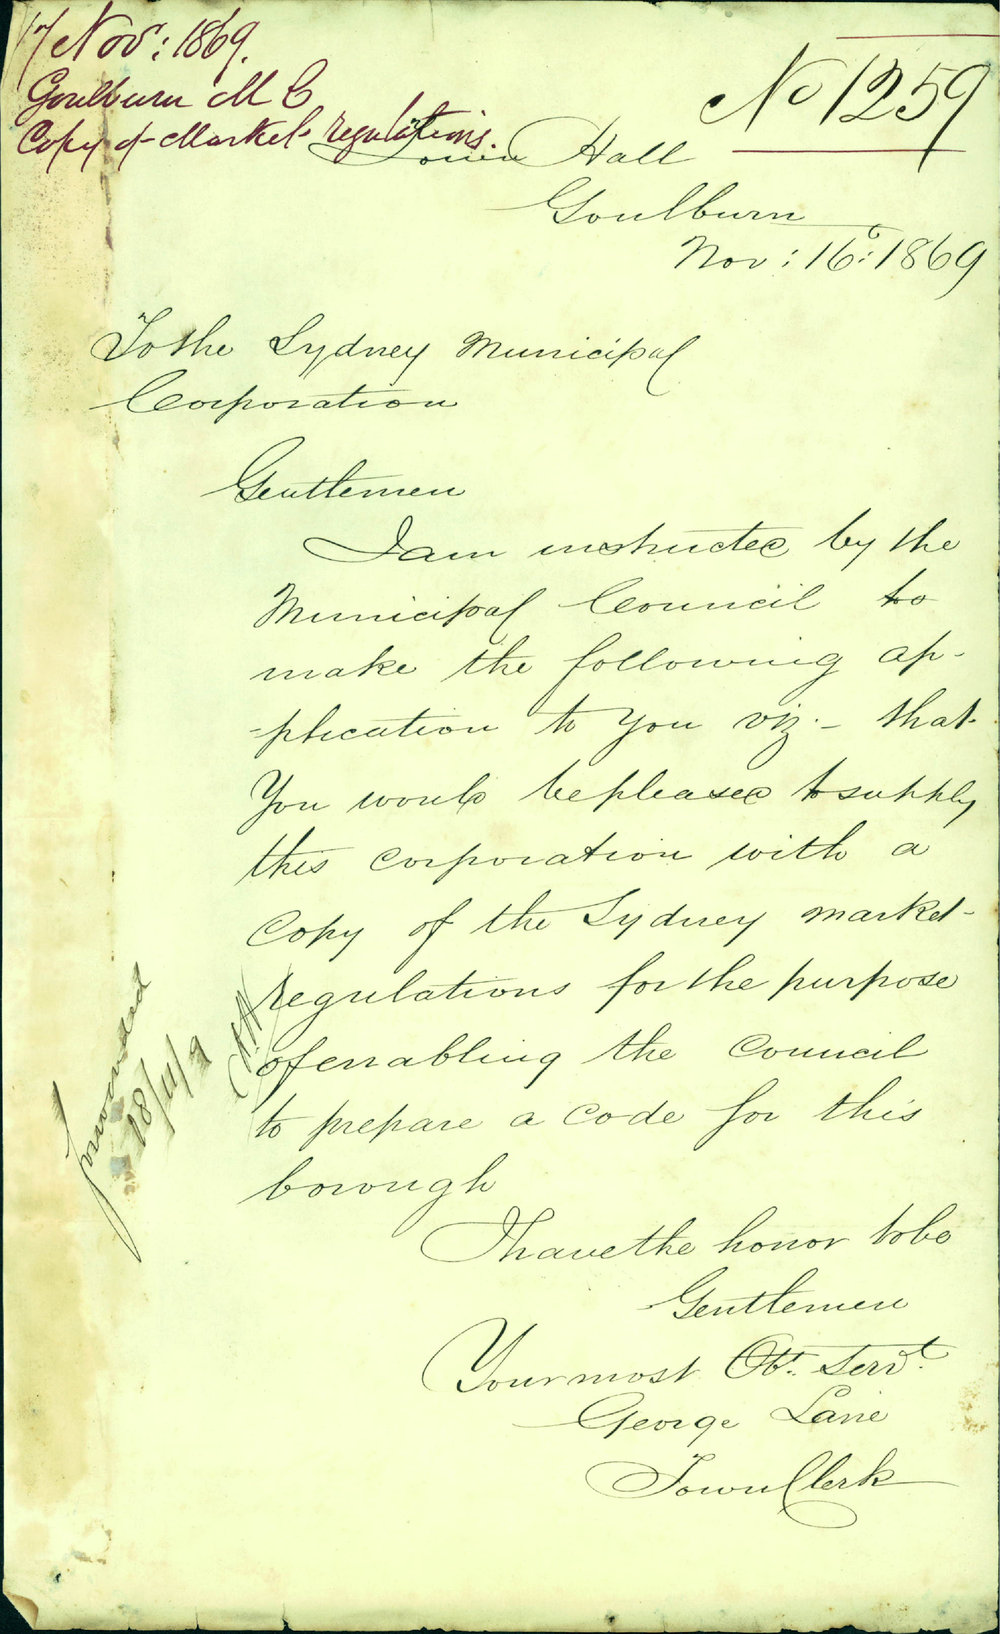 17 Nov: 1869.
Goulburn M C
Copy of Market regulations.
No 1259
Town Hall
Goulburn
Nov: 16: 1869
To the Sydney Municipal
Corporation
Gentlemen
I am instructed by the
Municipal Council to
make the following ap-
-plication to you viz:- that
You would be pleased to supply
this corporation with a
copy of the Sydney market-
regulations for the purpose
of enabling the council
to prepare a code for this
borough
I have the honor to be
Gentlemen
Your most Obt. Servt.
George Lane
Town Clerk
forwarded
18/11/9